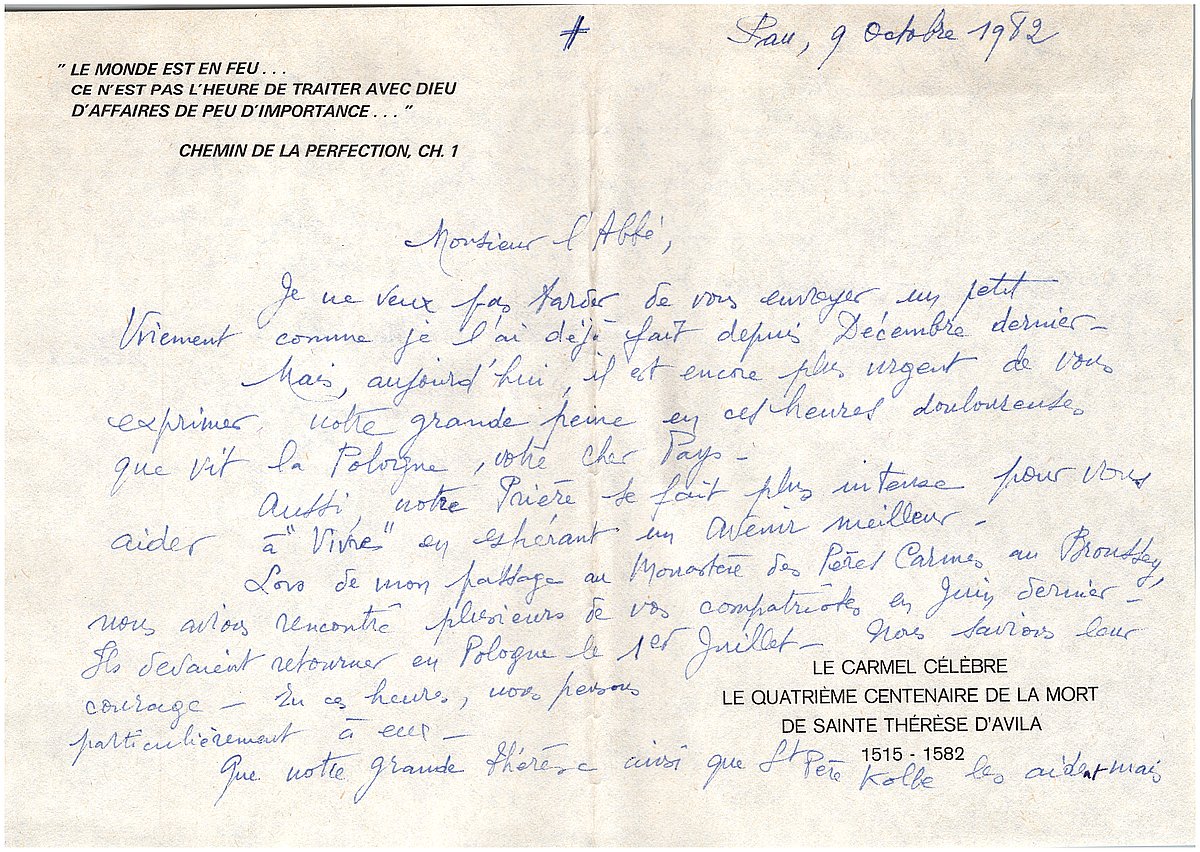 #
Pau, 9 Octobre 1982
" LE MONDE EST EN FEU . . .
CE N'EST PAS L'HEURE DE TRAITER AVEC DIEU
D'AFFAIRES DE PEU D'IMPORTANCE . . . "
CHEMIN DE LA PERFECTION, CH. 1
Monsieur l'Abbé,
Je ne veux pas tarder de vous envoyer un petit
Virement comme je l'ai déjà fait depuis Décembre dernier -
Mais, aujourd'hui, il est encore plus urgent de vous
exprimer notre grande peine en ces heures douloureuses
que vit la Pologne, votre cher Pays -
Aussi, notre Prière se fait plus intense pour vous
aider à "Vivre" en espérant un Avenir meilleur -
Lors de mon passage au Monastère des Pères Carmes au Broussey,
nous avions rencontré plusieurs de vos compatriotes en Juin dernier -
Ils devaient retourner en Pologne le 1er Juillet - Nous savions leur
courage - En ces heures, nous pensons
particulièrement à eux -
Que notre grande thérèse ainsi que St Père Kolbe les aident mais
LE CARMEL CÉLÈBRE
LE QUATRIÈME CENTENAIRE DE LA MORT
DE SAINTE THÉRÈSE D'AVILA
1515 - 1582